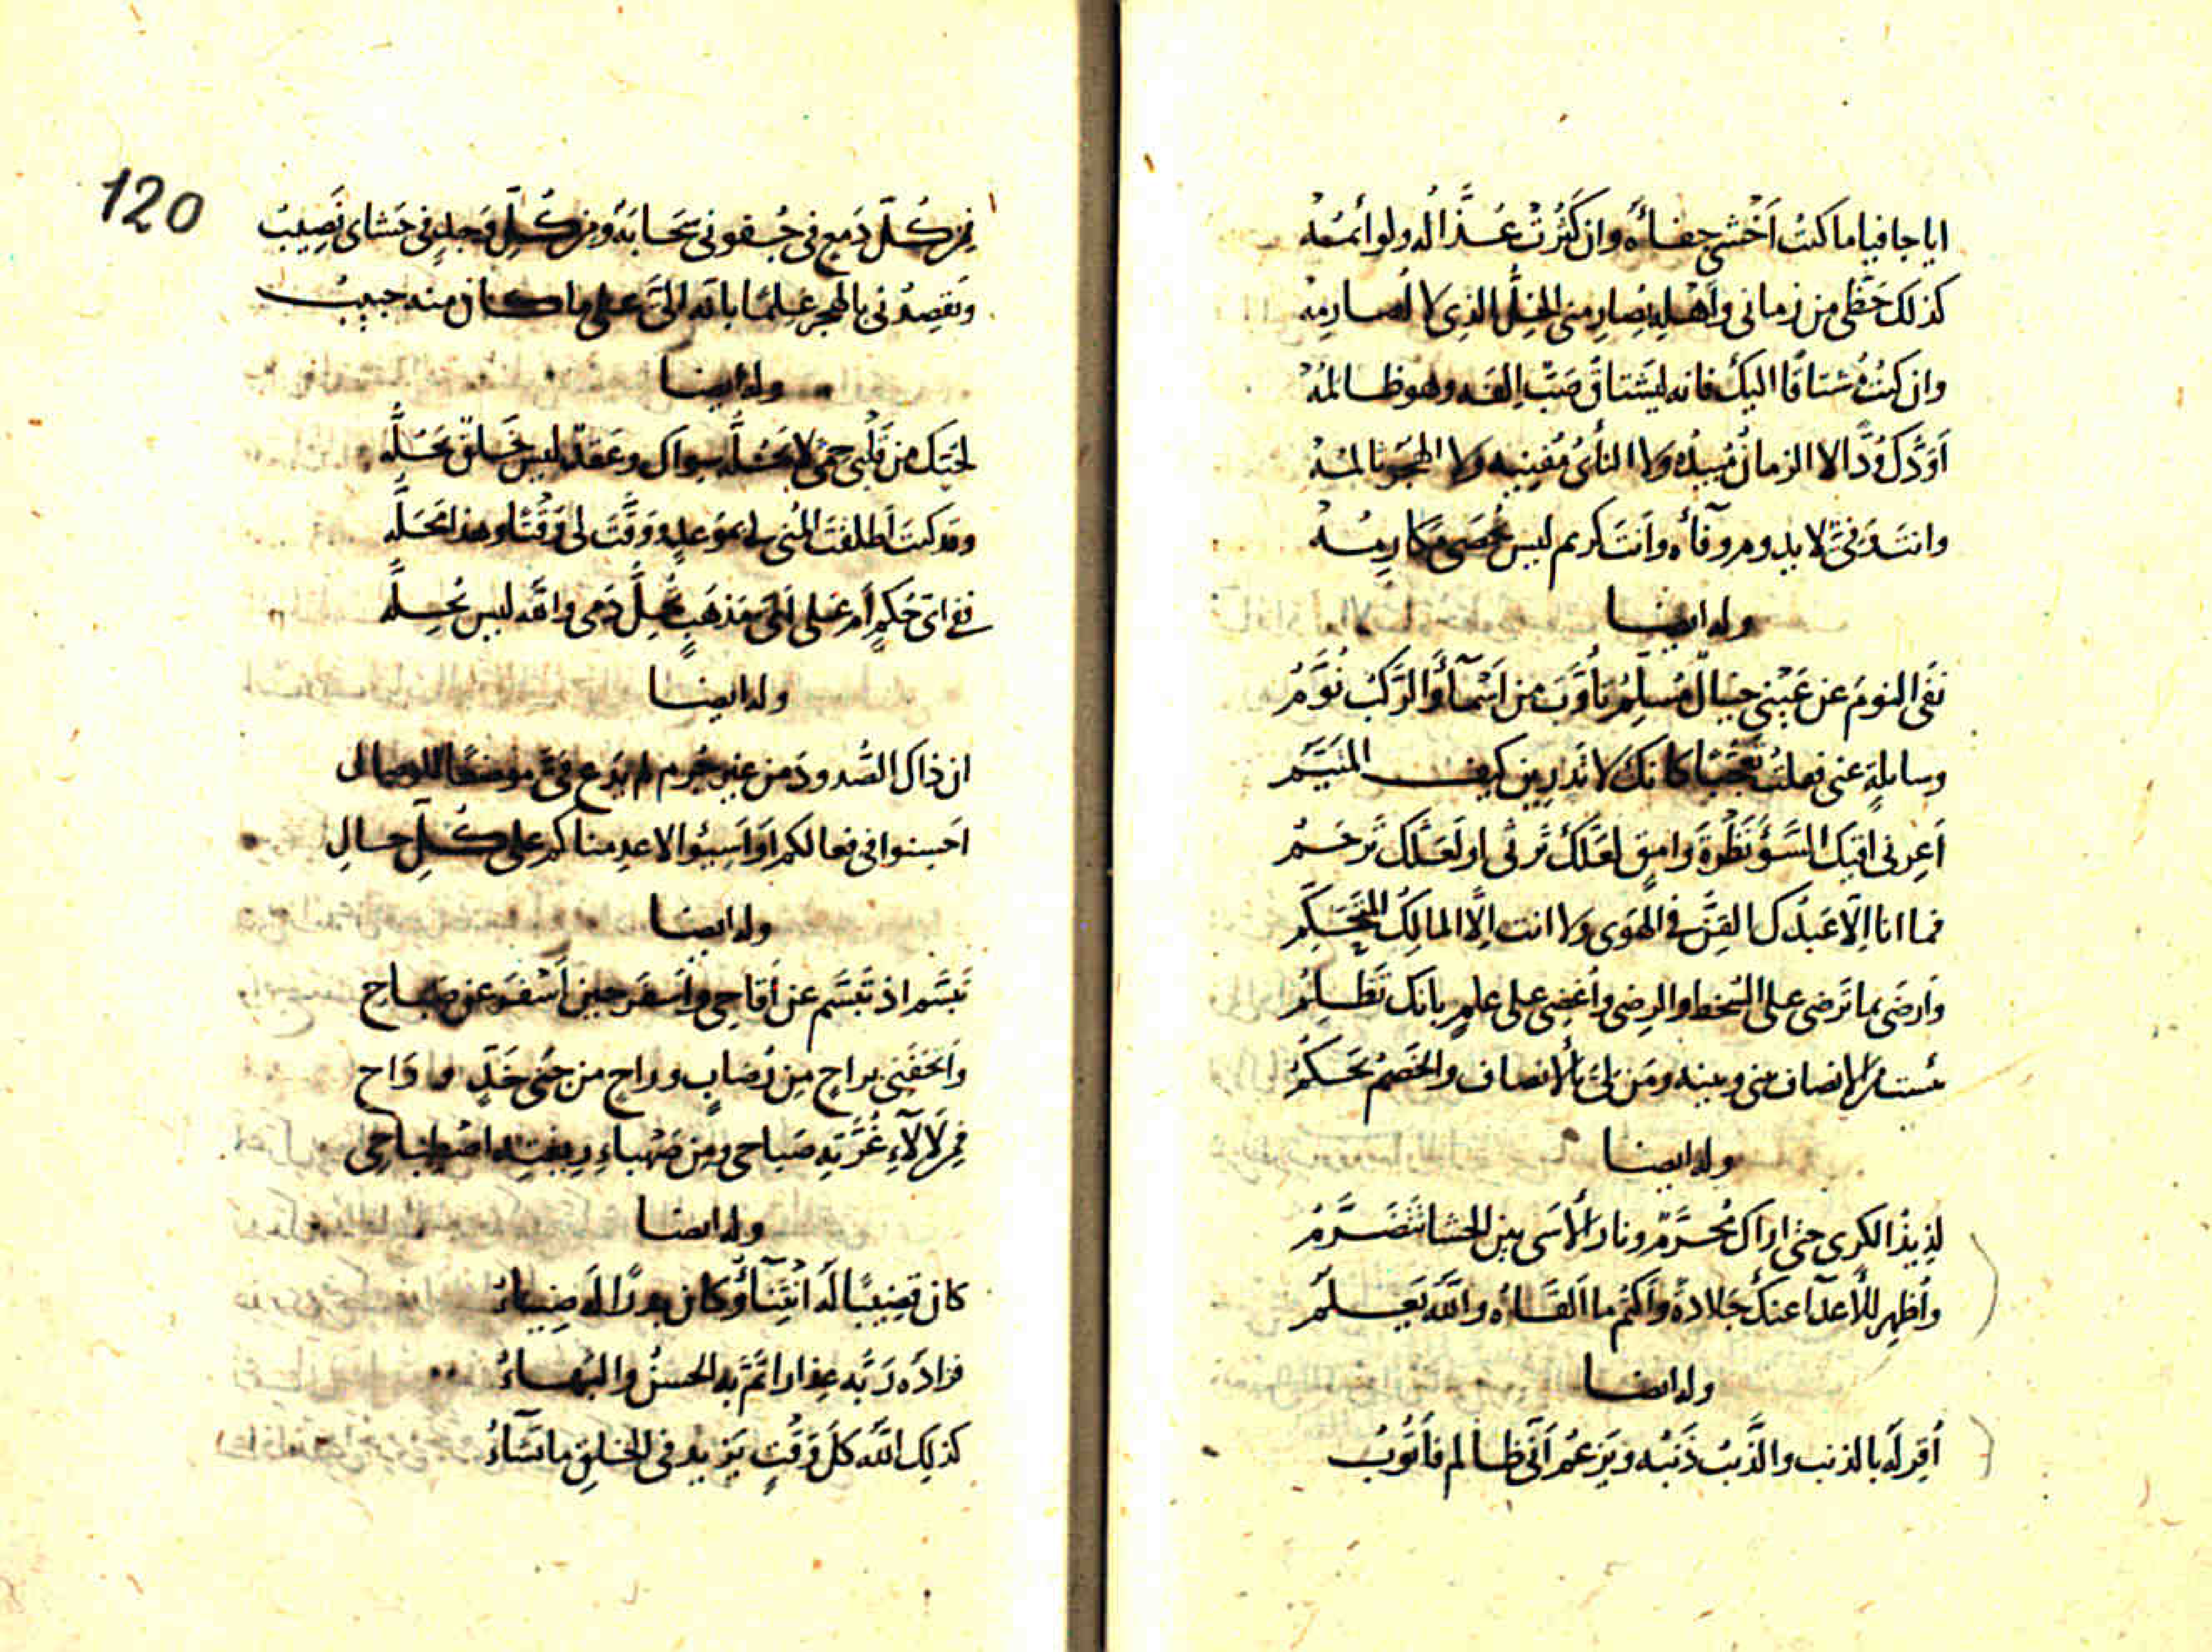 ايا جافيا ما كنتُ اَخْشى جفاءَه وان كَثُرَتْ عُذّالُه ولوائمُهْ
كذلك حَظّى من زمانى واَهْلِه يُصارِمنى الخِلُّ الذى لا اُصارِمُهْ
وان كنتُ مُشتاقًا اليك فانه ليَشتاقُ صَبٌّ اِلفَه وهو ظالمُهْ
اَوَدُّكَ وُدًّا لا الزمانُ مُبيدُه ولا النأىُ مُفنِيه ولا الهَجرُ ثالمُهْ
وانتَ وَفىٌّ لا يدوم وفآءه وانتَ كريم ليس تُحصَى مَكارِمُهْ
وله ايضا
نَفَى النومَ عن عَينى خيالٌ مُسلِّمُ تأوَّبَ من اَسْمآءَ والرَّكبُ نُوَّمُ
وسايلةٍ عنى فقلتُ تَعجُّبًا كانك لا تدرين كيف المتيَّمُ
اَعِرنى اَقيك السَّوْءَ نَظْرةَ وامِقٍ لعَلَّكَ تَرثى او لَعَلَّك تَرحَمُ
فما انا اِلّا عَبدُك القِنُّ فى الهَوَى ولا انت اِلَّا المالِكُ المُتَحَكِّمُ
وَارضَى بما تَرضى على السُّخط والرِضى واُغضِى على علمٍ بانك تَظلِمُ
يئست من الانصاف بينى وبينه ومَن لىَ بالاِنصاف والخَصمُ يَحكُمُ
وله ايضا
لذِيذُ الكرى حتى اراك مُحرَّمُ ونار الاَسَى بين الحشا تتَضَرَّمُ
واُظهِر للأعدآ عنك جَلادةً واَكتُم ما اَلقَاه واللَّه يَعلَمُ
وله ايضا
اُقِر لَه بالذنب والذَّنبُ ذَنبُه ويَزعُم اَنّى ظالم فاَتوُبُ
120
فمِن كُلِّ دَمعٍ فى جُفونى سَحابَةٌ ومِن كُلِّ وَجدٍ فى حَشاى نَصِيبُ
وتَقصِدُنى بالهجر عِلمًا بانّه الىَّ على ما كان منه حبيبُ
وله ايضا
لحُبّك من قَلْبى حِمًى لا يَحُلُّه سِواك وعَقدٌ ليس خَلقٌ يَحُلُّه
وقد كنتَ اَطلقتَ المُنى لى بمَوعدٍ ووَقَّتَّ لى وَقْتًا وهذا مَحَلُّه
ففى اىّ حُكمٍ اَم على اَىِّ مَذهَبٍ تُحِلُّ دَمى واللَّه ليس يُحِلُّه
وله ايضا
ان ذاك الصُّدودَ من غير جُرم لم يَدَع فىَّ موضعًا للوصالِ
احسِنوا فى فعالكم اَو اَسِيئُوا لا عدِمناكم على كُلِّ حالِ
وله ايضا
تَبَسَّم اذ تَبَسَّم عن اَقاحِى واَسفَر حين اَسْفَرَ عن صَباحِ
واَتحَفَنى براحٍ من رُضابٍ وراحٍ من جَنى خَدٍّ وراحِ
فمن لَاْلَآءِ غُرَّتِه صَباحى ومن صَهباءِ رِيقتِه اصْطِباحِى
وله ايضا
كان قضِيبًا لَه انْثِنَآءُ وكان بدرًا له ضِياءُ
فزادَه رَبُّه عِذارا تَمَّ به الحسنُ والبَهاءُ
كذلِك اللَّه كلَّ وَقتٍ يَزيد فى الخلق ما يَشَآءُ